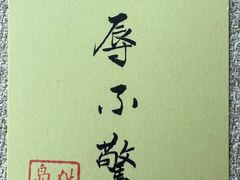 辱不驚